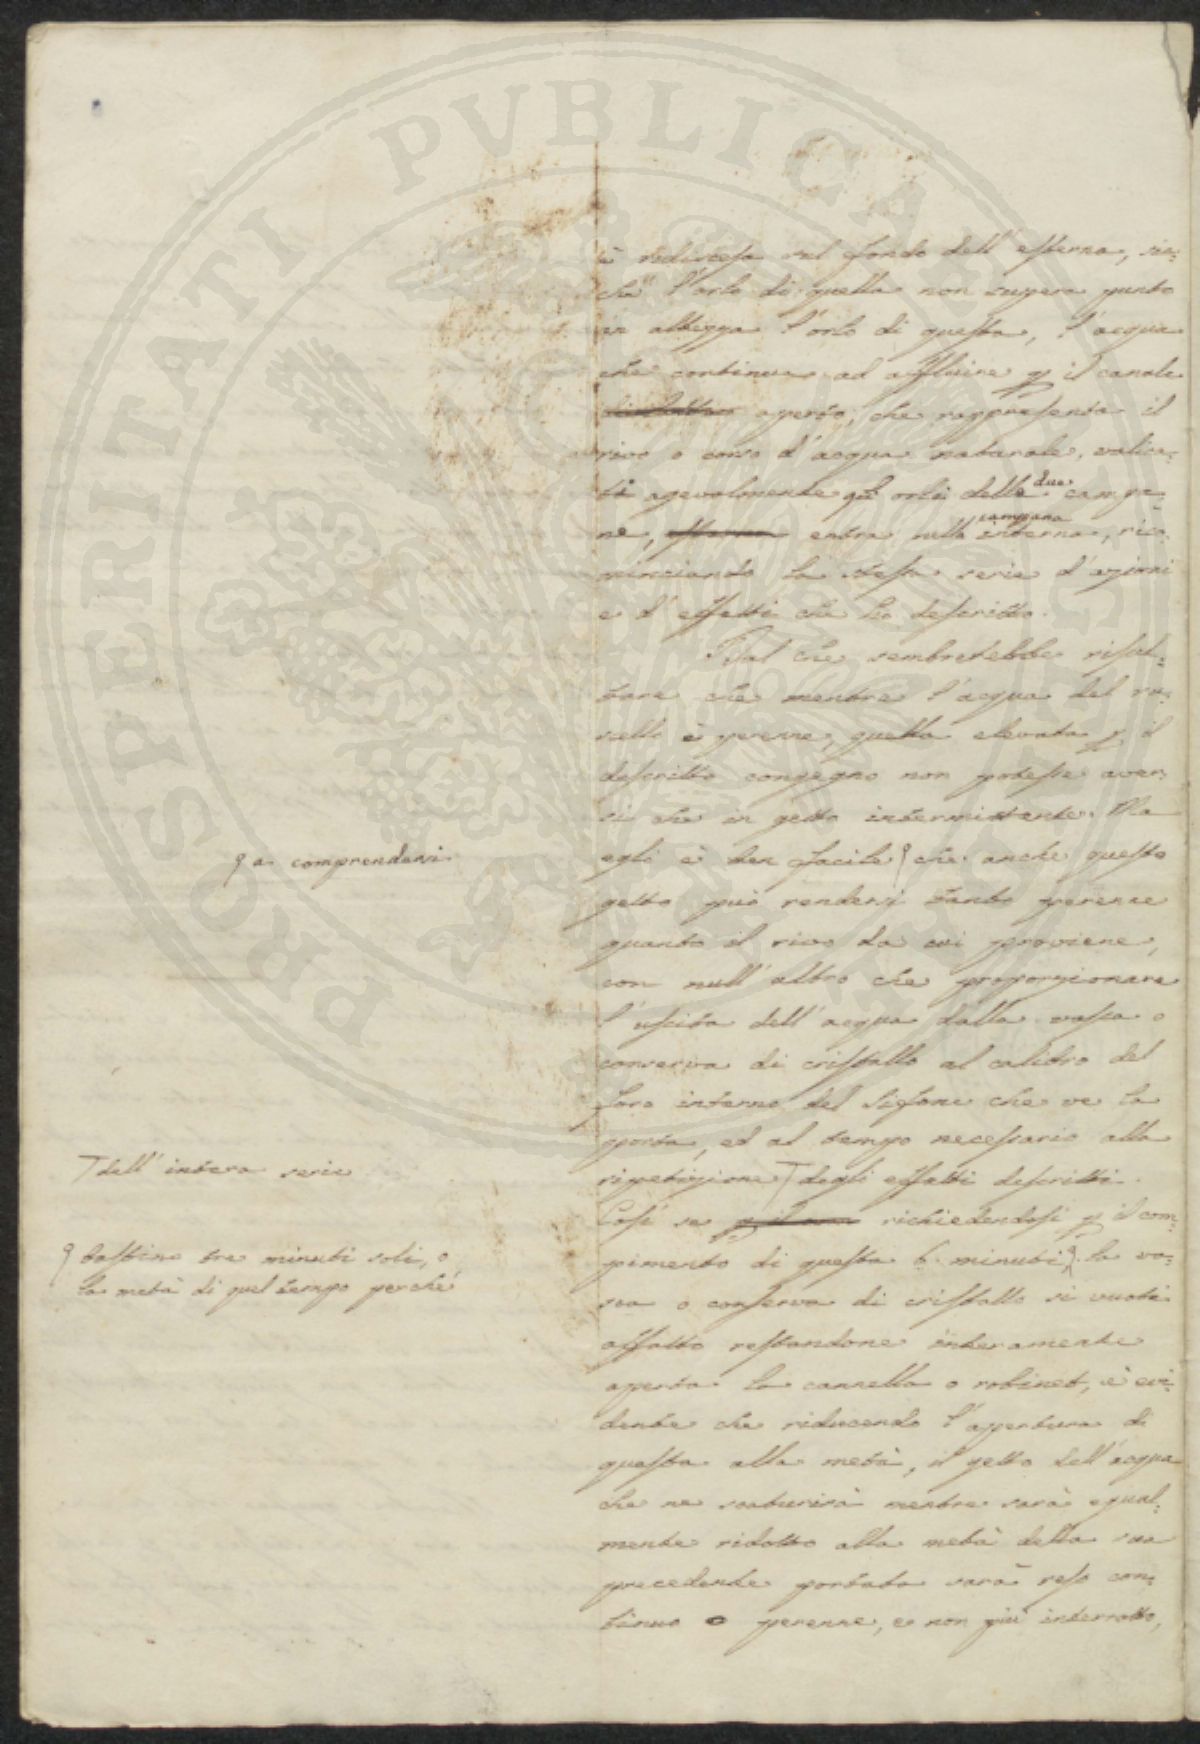 è ridiscesa sul fondo dell'esterna, sic:
chè l'orlo di quella non supera punto
in altezza l'orlo di questa, l'acqua
che continua ad affluire p il canale
aperto, che rappresenta il
rivo o corso d'acqua naturale, valica:
ti agevolmente gli orli delle due campa:
ne, entra nella campana interna, rico:
minciando la stessa serie d'azioni
e d'effetti che ho descritto.
Dal che sembrerebbe risul:
tare che mentre l'acqua del ru:
scello è perenne, quella elevata p il
descritto congegno non potesse aver:
si che in getto intermittente. Ma
egli è ben facile che anche questo
a comprendersi
getto può rendersi tanto perenne
quanto il rivo da cui proviene,
con null'altro che proporzionare
l'uscita dell'acqua dalla vasca o
conserva di cristallo al calibro del
foro interno del sifone che ve la
porta, ed al tempo necessario alla
ripetizione degli effetti descritti.
dell'intera serie
Così se richiedendosi p il com:
pimento di questa 6 minuti la va:
bastino tre minuti soli, o
la metà di quel tempo perchè
sca o conserva di cristallo si vuoti
affatto restandone interamente
aperta la cannella o robinet, è evi:
dente che riducendo l'apertura di
questa alla metà, il getto dell'acqua
che ne scaturirà mentre sarà egual:
mente ridotto alla metà della sua
precedente portata sarà reso con:
tinuo e perenne, e non più interrotto,
PROSPERITATI PVBLICAE